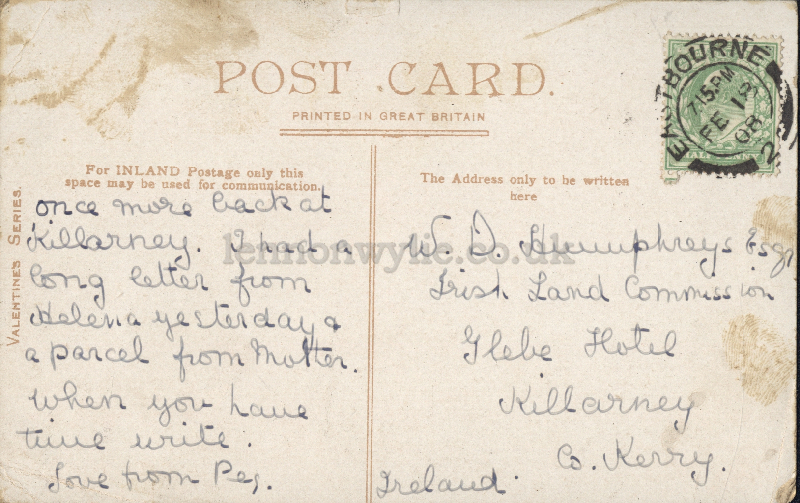 POST CARD.
PRINTED IN GREAT BRITAIN
For INLAND Postage only this
space may be used for communication.
The Address only to be written
here
VALENTINE'S SERIES.
EASTBOURNE
7.15 PM
FE 12
08
once more back at
Killarney. I had a
long letter from
Helena yesterday &
a parcel from Mother.
When you have
time write.
Love from Peg.
W. D. Humphreys Esqr
Irish Land Commission
Glebe Hotel
Killarney
Co. Kerry.
Ireland.
lennonwylie.co.uk